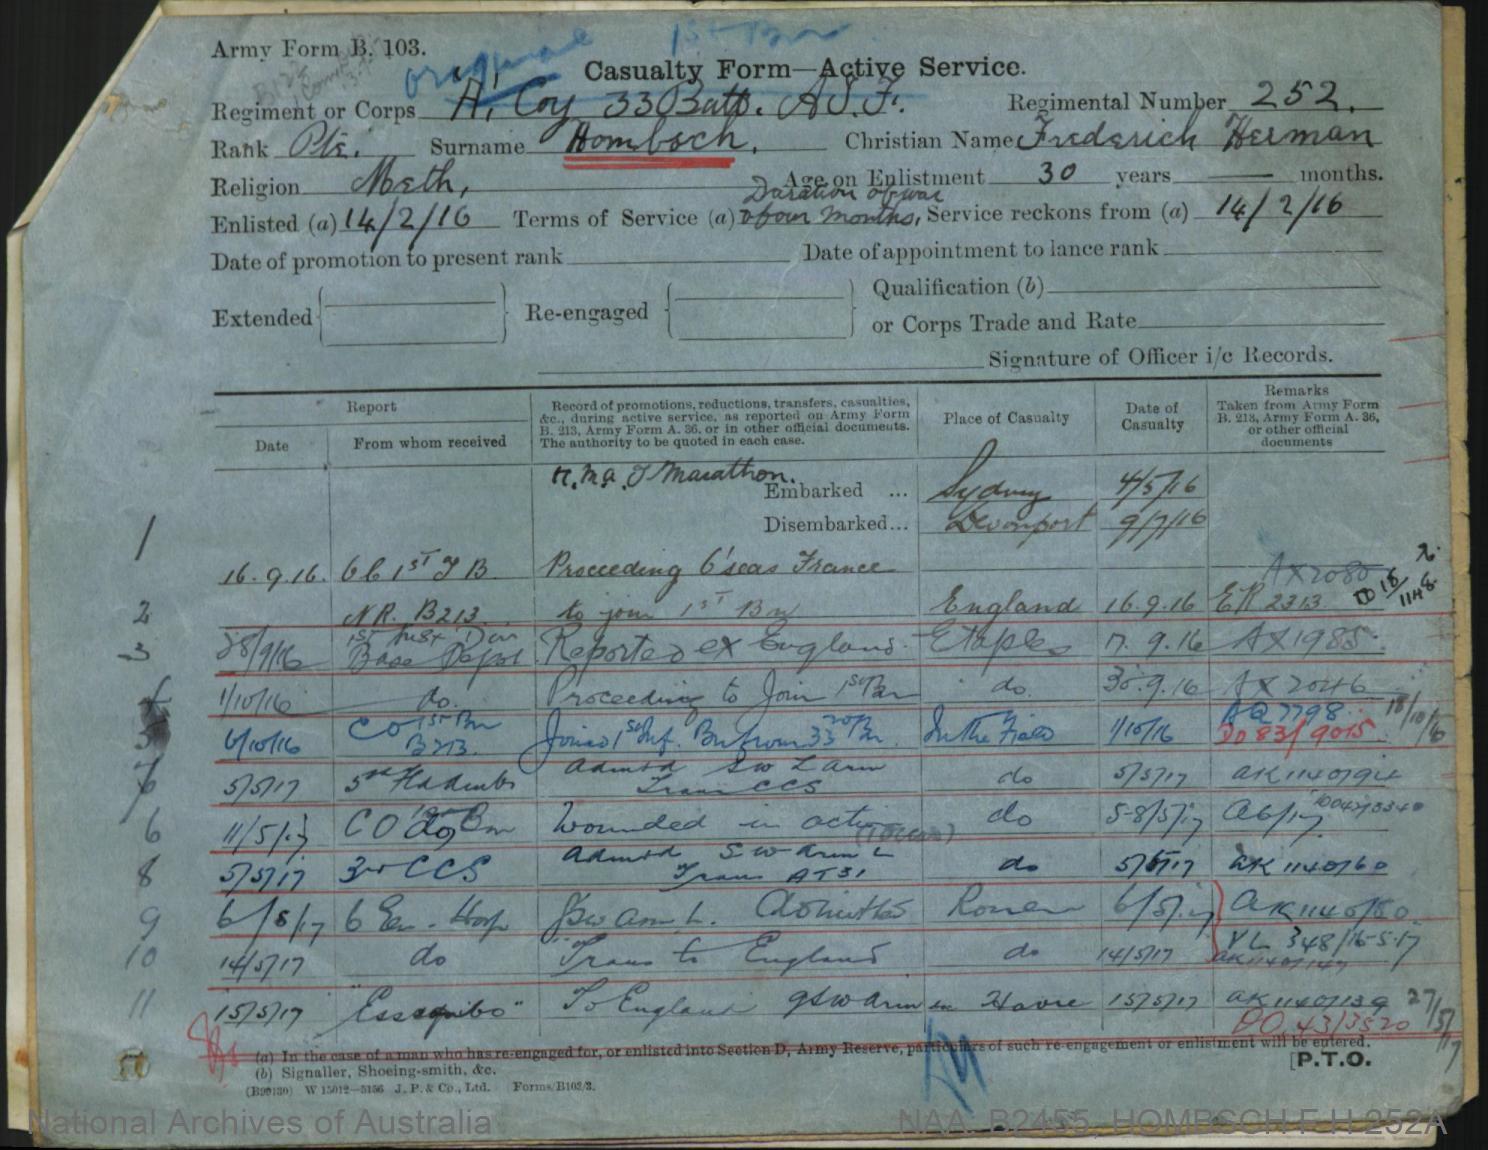 Army Form B. 103.
original 1st Bn
Casualty Form—Active Service.
Regiment or Corps "A" Coy 33 Batt. A.I.F. Regimental Number 252.
Rank Pte. Surname Hombsch, Christian Name Frederick Herman
Religion Meth, Age on Enlistment 30 years — months.
Duration of war
Enlisted (a) 14/2/16 Terms of Service (a) & four months, Service reckons from (a) 14/2/16
Date of promotion to present rank Date of appointment to lance rank
Extended Re-engaged Qualification (b)
or Corps Trade and Rate
Signature of Officer i/c Records.
Report
Date From whom received
Record of promotions, reductions, transfers, casualties,
&c., during active service, as reported on Army Form
B. 213, Army Form A. 36, or in other official documents.
The authority to be quoted in each case.
Place of Casualty
Date of
Casualty
Remarks
Taken from Army Form
B. 213, Army Form A. 36,
or other official
documents
H.M.A.T Marathon.
Embarked ... Sydney 4/5/16
Disembarked... Devonport 9/7/16
1
16.9.16. 1st T B. Proceeding O'seas France AX2080
2 N.R. B213. to join 1st Bn England 16.9.16 ER 2313
3 28/9/16 1st Aust Div Base Depot Reported ex England Etaples 17.9.16 AX1985
4 1/10/16 do. Proceeding to Join 1st Bn do. 30.9.16 AX2046
5 6/10/16 CO 1st Bn B213. Joined 1st Inf. Bn from 33rd Bn. In the Field 1/10/16 AQ7798 DO 83/9015 18/10/16
5/5/17 Admtd SW L Arm Trans CCS do 5/5/17 AK1140794
6 11/5/17 CO 1st Bn Wounded in action do 5-8/5/17
8 5/5/17 3rd CCS Admtd SW Arm L Trans AT31 do 5/5/17 AK1140760
9 6/5/17 6 Gen. Hosp GSW Arm L. Admitted Rouen 6/5/17 AK1140780.
10 14/5/17 do Trans to England do 14/5/17 VL 348/16-5-17
11 15/5/17 "Essequibo" To England GSW Arm Havre 15/5/17 AK11401139
DO. 43/3520 27/5/17
(a) In the case of a man who has re-engaged for, or enlisted into Section D, Army Reserve, particulars of such re-engagement or enlistment will be entered.
(b) Signaller, Shoeing-smith, &c.
[P.T.O.
(B90130) W 15012—5156 J. P. & Co., Ltd. Forms/B103/3.
National Archives of Australia NAA: B2455, HOMBSCH F H 252A